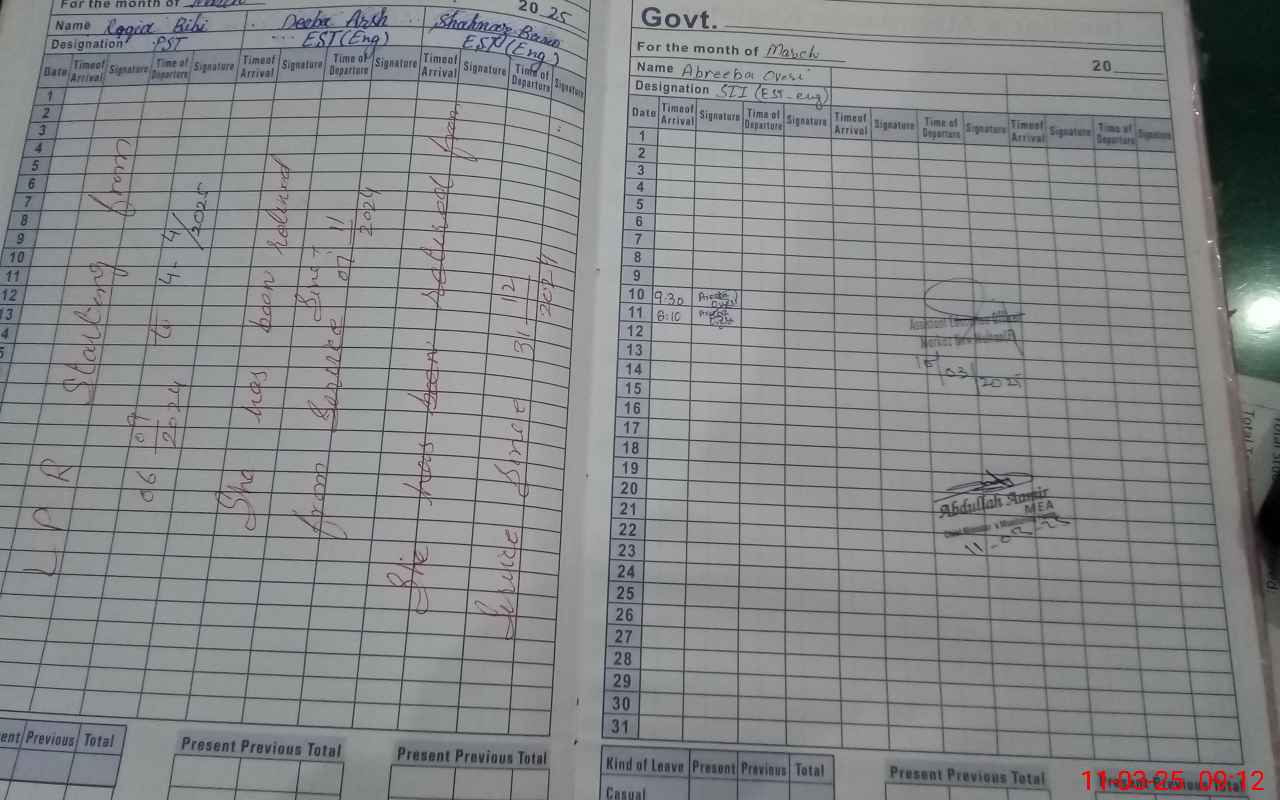 For the month of March 20 25
Name Roqia Bibi Deeba Arsh Shahnaz Bano
Designation PST EST(Eng) EST(Eng)
Date Timeof Arrival Signature Time of Departure Signature Timeof Arrival Signature Time of Departure Signature Timeof Arrival Signature Time of Departure Signature
1
2
3
4
5
6
7
8
9
10
11
12
13
4
5
L P R Starting from
06 07/2024 to 4-4/2025
She has been retired
from Service Since 07 11/2024
She has been retired from
Service Since 31-12/2024
ent Previous Total
Present Previous Total
Present Previous Total
Govt.
For the month of March 20
Name Abreeba Ovesi
Designation SII (EST-eng)
Date Timeof Arrival Signature Time of Departure Signature Timeof Arrival Signature Time of Departure Signature Timeof Arrival Signature Time of Departure Signature
1
2
3
4
5
6
7
8
9
10 9:30
11 8:10
12
13
14
15
16
17
18
19
20
21
22
23
24
25
26
27
28
29
30
31
Assistant
Markaz
10/03/2025
Abdullah Aamir
MEA
11-03-25
Kind of Leave Present Previous Total
Casual
Present Previous Total
Present Previous Total
11-03-25 09:12